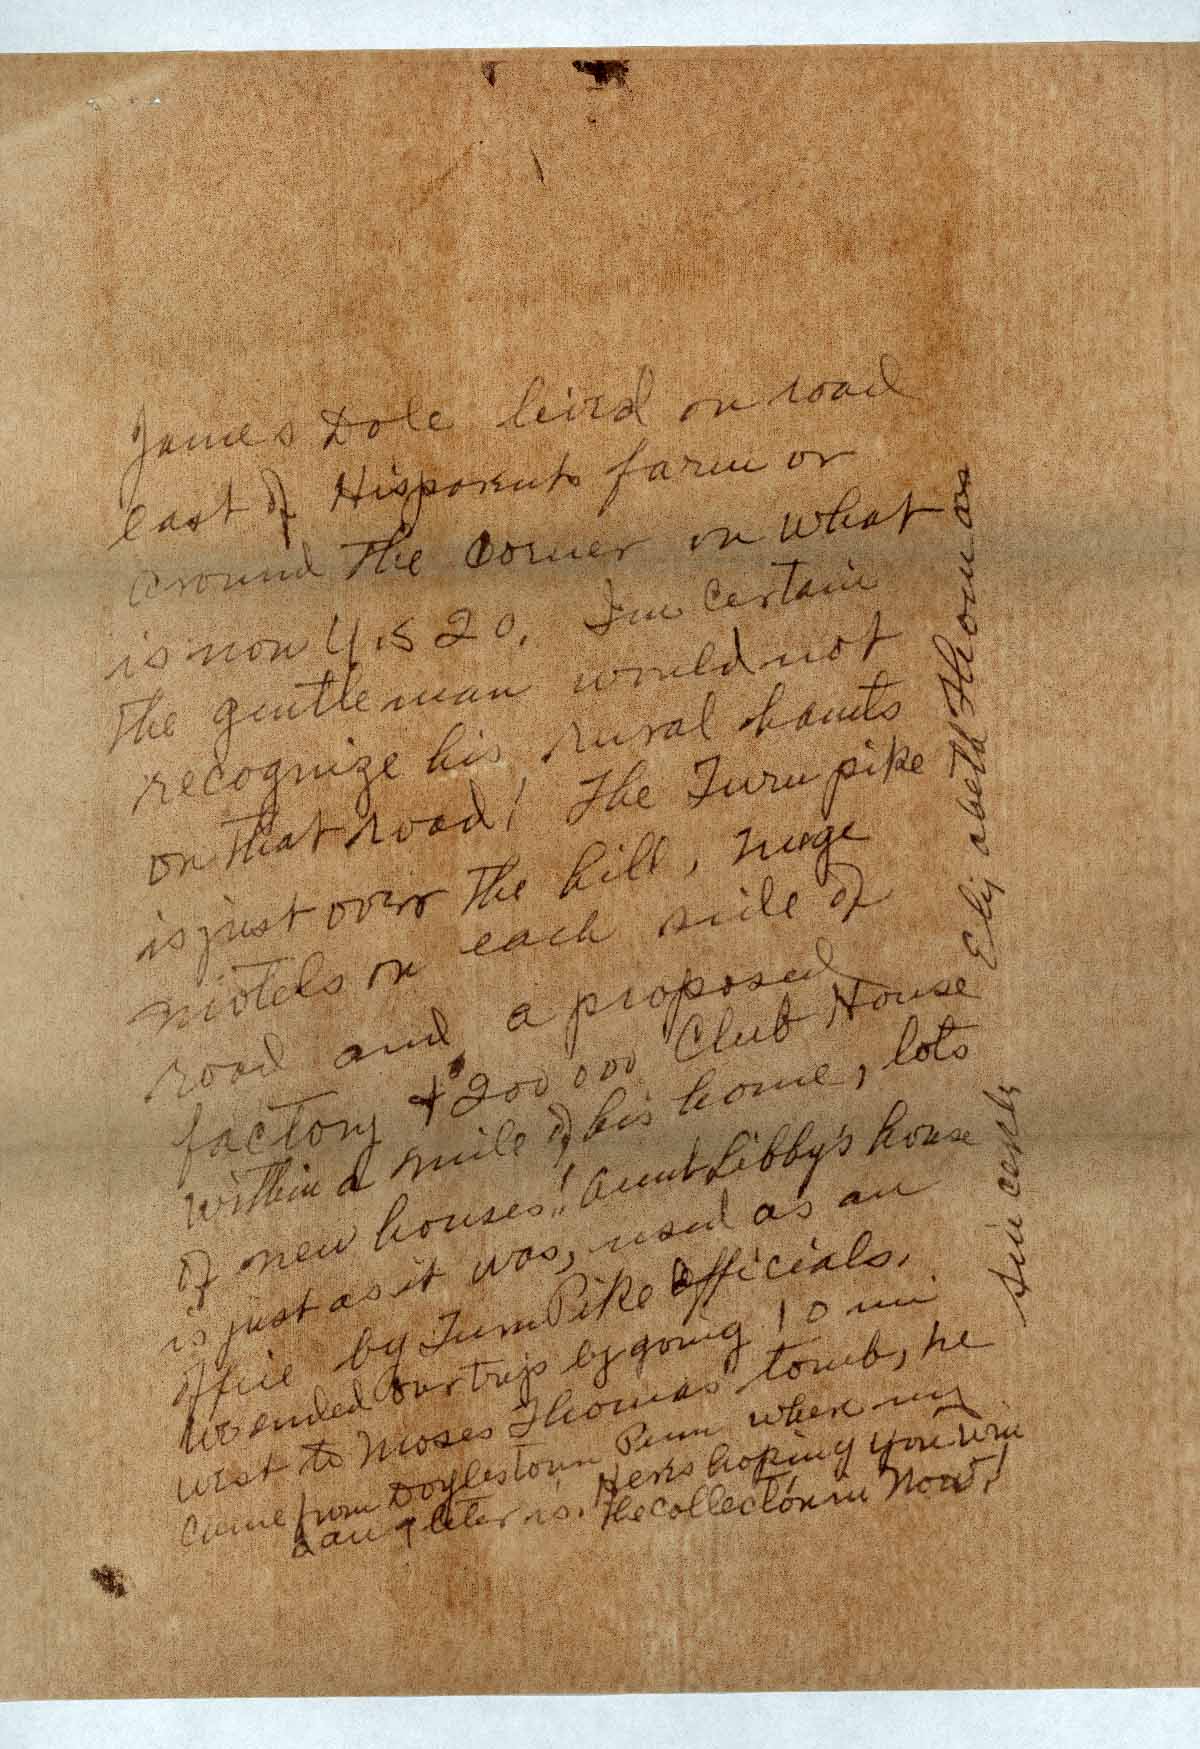 James Dole livd on road
east of His parents farm or
around the corner on what
is now U.S 20. I'm certain
the gentleman would not
recognize his rural haunts
on that road! The Turn pike
is just over the hill, huge
motels on each side of
road and a proposed
factory + 200 000 Club House
within a mile of his home, lots
of new houses!! Aunt Libby's house
is just as it was, used as an
office by Turn Pike officials.
We ended our trip by going 10 mi
west to Moses Thomas' tomb, he
came from Doylestown Penn where my
daughter is. Here's hoping you win
the collection in Nov.!
Sincerely
Elizabeth Thomas